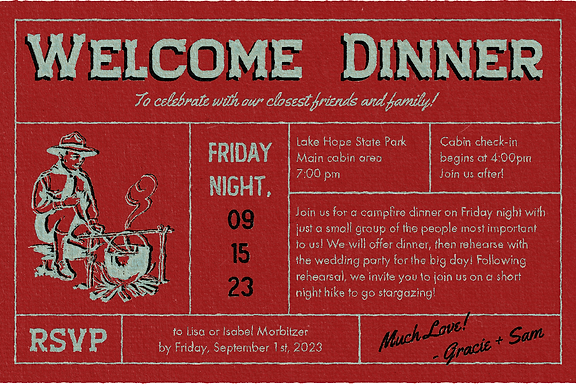 WELCOME DINNER
To celebrate with our closest friends and family!
FRIDAY
NIGHT,
09
15
23
Lake Hope State Park
Main cabin area
7:00 pm
Cabin check-in
begins at 4:00pm
Join us after!
Join us for a campfire dinner on Friday night with
just a small group of the people most important
to us! We will offer dinner, then rehearse with
the wedding party for the big day! Following
rehearsal, we invite you to join us on a short
night hike to go stargazing!
RSVP
to Lisa or Isabel Morbitzer
by Friday, September 1st, 2023
Much Love!
- Gracie + Sam